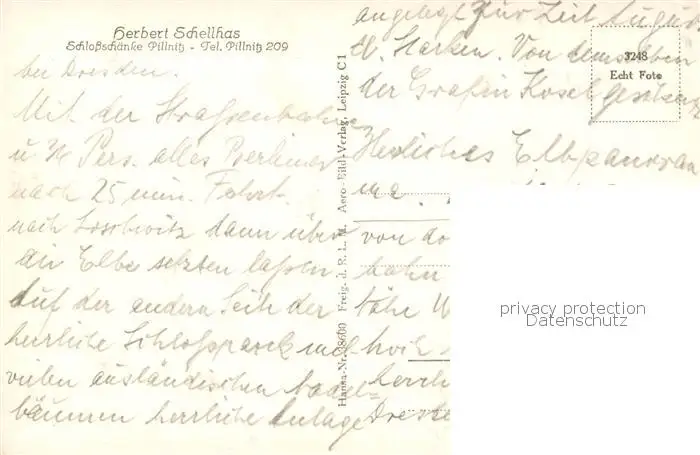 Herbert Schellhas
Schloßschänke Pillnitz - Tel. Pillnitz 209
bei Dresden.
Mit der Straßenbahn
u. Pers. alles Berliner
nach 25 min. Fahrt.
nach Loschwitz dann über
die Elbe setzten lassen
Auf der andern Seite der
herrliche Schloßpark mit
vielen ausländischen Nadel=
bäumen herrliche Anlage
Hansa-Nr. 18600 Freig. d. R. L. M. Aero-Bild-Verlag, Leipzig C1
angelegt zur Zeit August
d. Starken. Von demselben
der Gräfin Kosel
Herrliches Elbpanoram
ma.
von
bahn
Nähe W
Dresde
3248
Echt Foto
privacy protection
Datenschutz